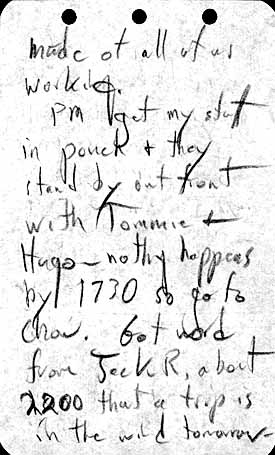 made of all of us
working.
PM I get my stuff
in pouch + they
stand by out front
with Tommie +
Hugo - nothg happens
by 1730 so go to
chow. Got word
from Jack R, about
2200 that a trip is
in the wild tomorrow-